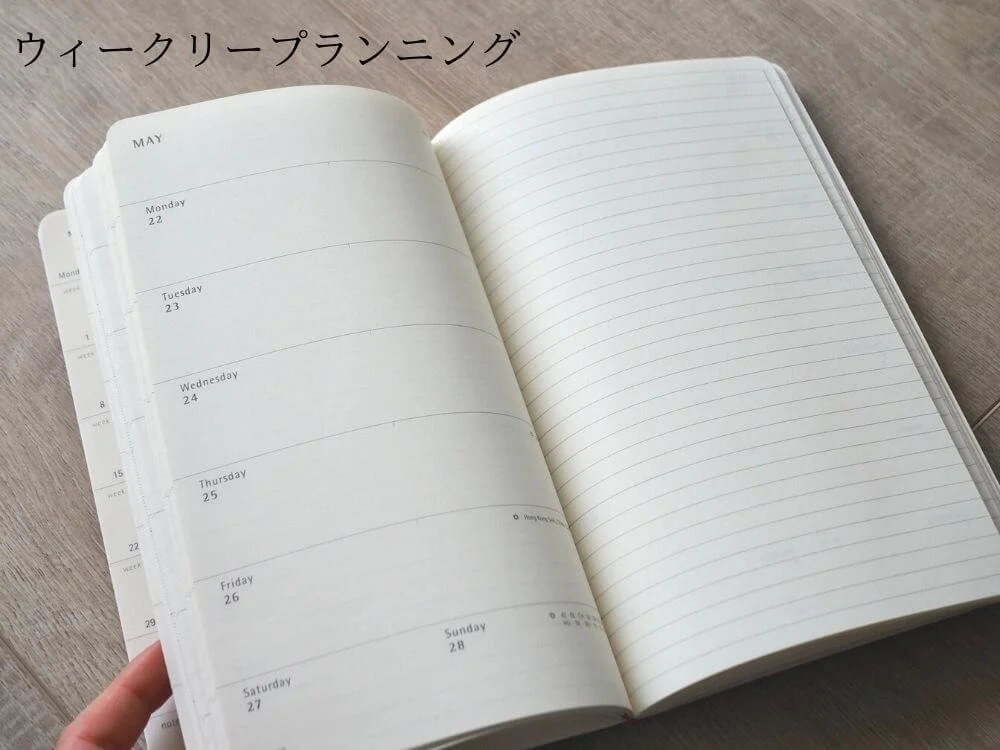 ウィークリープランニング
MAY
Monday
22
Tuesday
23
Wednesday
24
Thursday
25
Friday
26
Saturday
27
Sunday
28
Mond
week
1
week
8
week
15
week
22
week
29
note